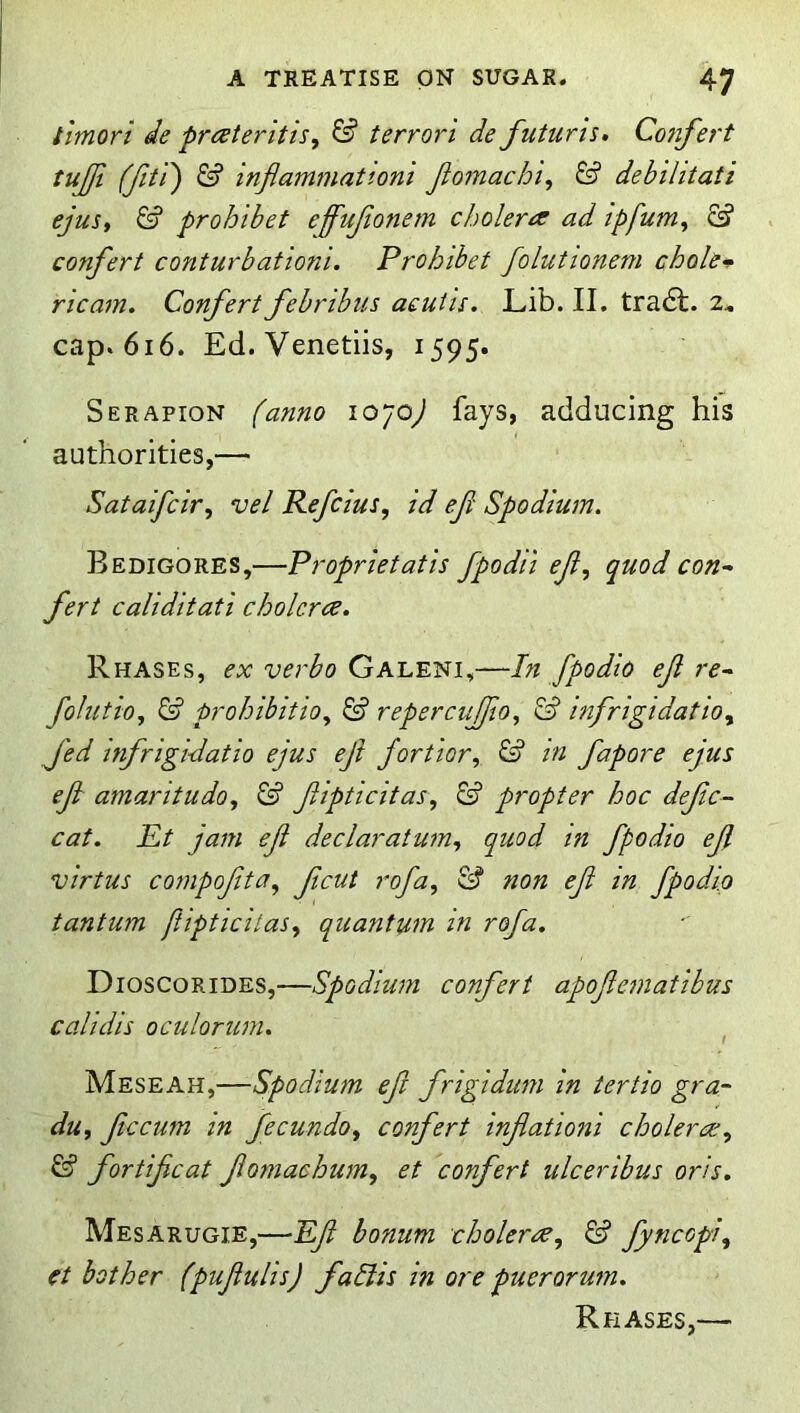 A TREATISE ON SUGAR. 47
timori de præteritis, & terrori de futuris. Confert
tuſſi (ſiti) & inflammationi ſtomachi, & debilitati
ejus, & prohibet effuſionem choleræ ad ipſum, &
confert conturbationi. Prohibet ſolutionem chole-
ricam. Confert febribus acutis. Lib. II. tract. 2.
cap. 616. Ed. Venetiis, 1595.
SERAPION (anno 1070) ſays, adducing his
authorities,—
Sataiſcir, vel Reſcius, id eſt Spodium.
BEDIGORES,—Proprietatis ſpodii eſt, quod con-
fert caliditati choleræ.
RHASES, ex verbo GALENI,—In ſpodio eſt re-
ſolutio, & prohibitio, & repercuſſio, & infrigidatio,
ſed infrigidatio ejus eſt fortior, & in ſapore ejus
eſt amaritudo, & ſtipticitas, & propter hoc deſic-
cat. Et jam eſt declaratum, quod in ſpodio eſt
virtus compoſita, ſicut roſa, & non eſt in ſpodio
tantum ſtipticitas, quantum in roſa.
DIOSCORIDES,—Spodium confert apoſtematibus
calidis oculorum.
MESEAH,—Spodium eſt frigidum in tertio gra-
du, ſiccum in ſecundo, confert inflationi choleræ,
& fortificat ſtomachum, et confert ulceribus oris.
MESARUGIE,—Eſt bonum choleræ, & ſyncopi,
et bother (puſtulis) factis in ore puerorum.
RHASES,—